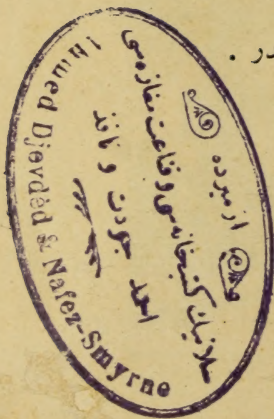 در .
ازمیرده
سلانیك كتبخانه سی و قناعت مغازه سی
احمد جودت و نافذ
Ahmed Djevded & Nafez-Smyrne